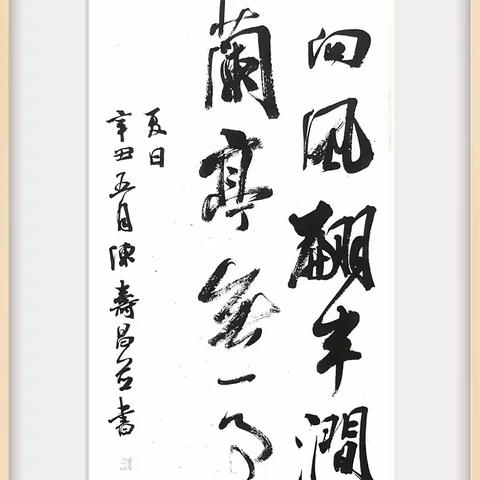 向風翻半澗
蘭亭無一
夏日
辛丑五月陳壽昌書